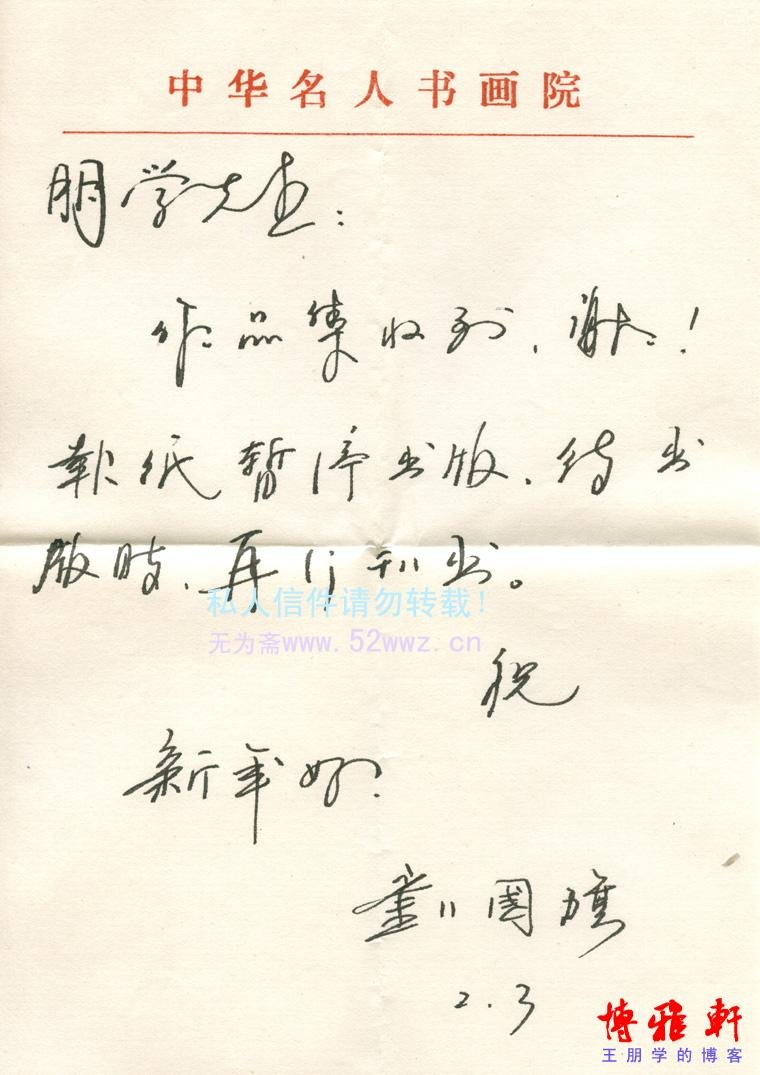 中华名人书画院
朋学先生：
作品集收到，谢谢！
报纸暂停出版，待出
版时，再行刊出。
私人信件请勿转载！
无为斋www.52wwz.cn
祝
新年好！
刘国旗
2.3
博雅轩
王朋学的博客